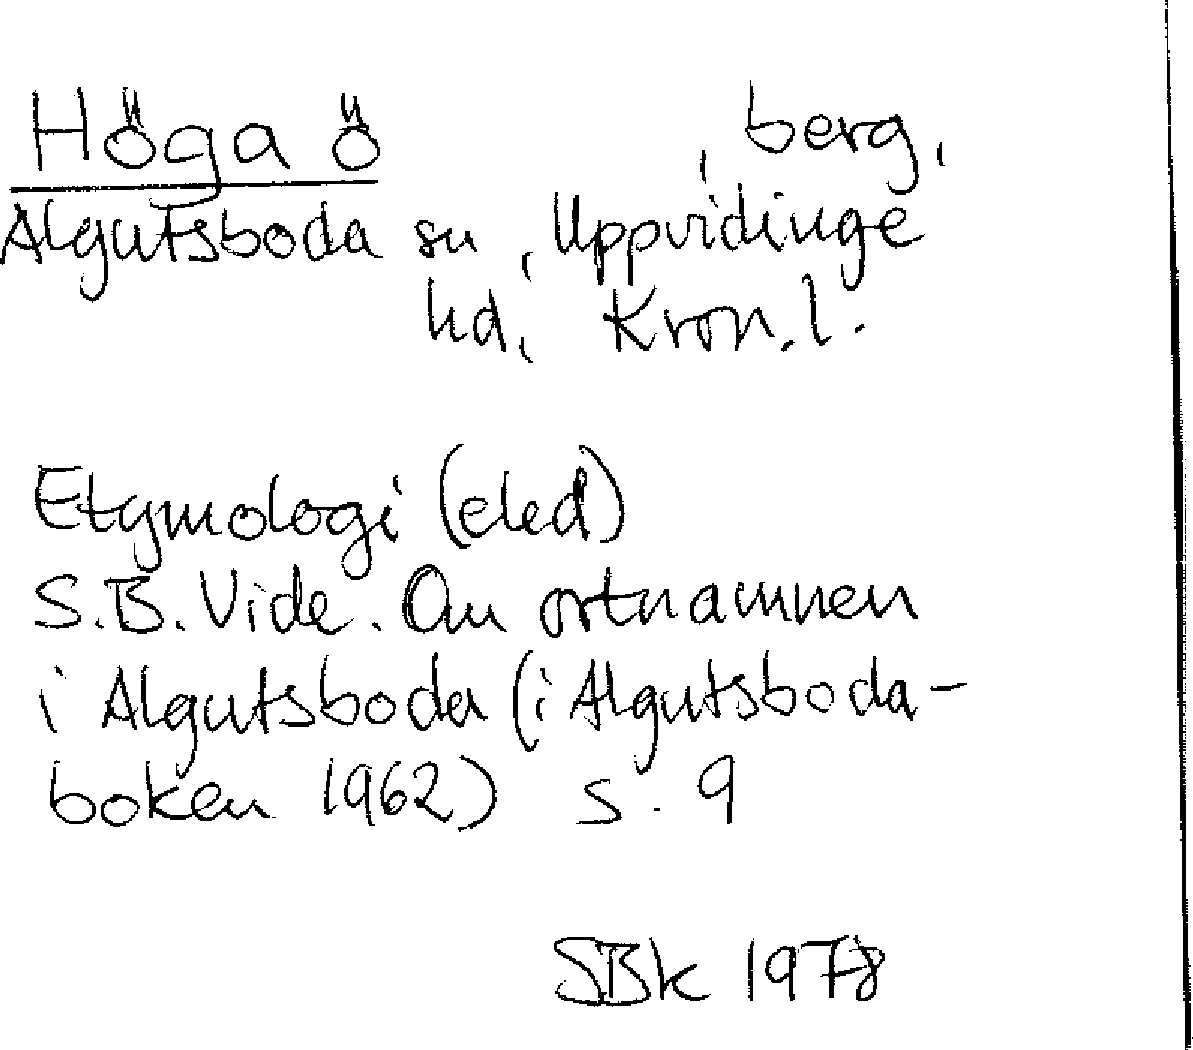 Höga ö , berg,
Algutsboda sn, Uppvidinge
hd, Kron. l.
Etymologi (eled)
S.B. Vide. Om ortnamnen
i Algutsboda (i Algutsboda-
boken 1962) s. 9
SBk 1978